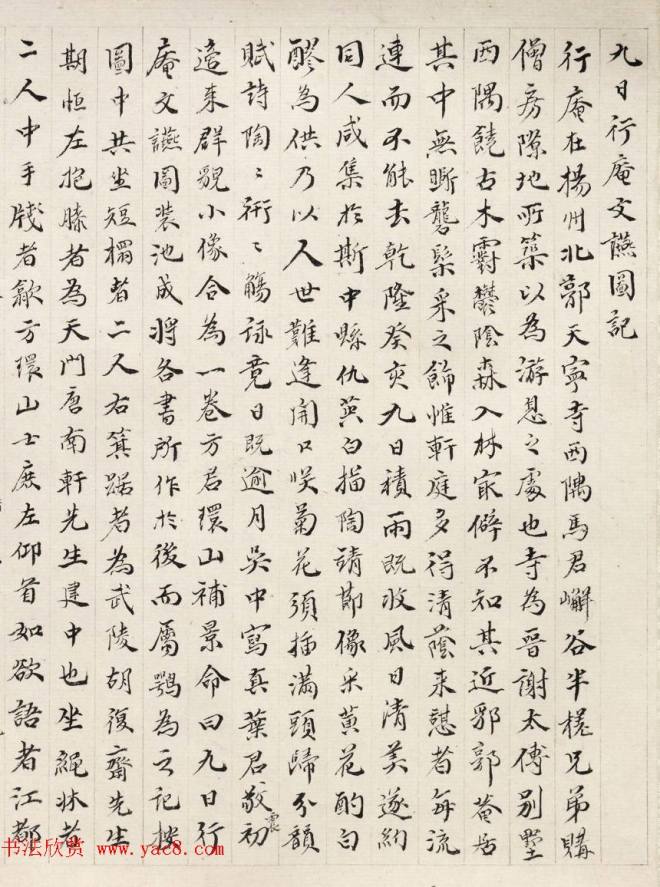 九日行庵文讌圖記
行庵在揚州北郭天寧寺西隅馬君嶰谷半槎兄弟購
僧房隙地所築以為游息之處也寺為晉謝太傅別墅
西隅饒古木霨鬱陰森入林寂僻不知其近郛郭菴居
其中無斵礱髹采之飾惟軒庭多得清蔭來憇者每流
連而不能去乾隆癸亥九日積雨既收風日清美遂約
同人咸集於斯中縣仇英白描陶靖節像采黃花酌白
醪為供乃以人世難逢開口咲菊花須插滿頭歸分韻
賦詩陶〻衎〻觴詠竟日既逾月吳中寫真葉君敬初震
適來群貌小像合為一卷方君環山補景命曰九日行
庵文讌圖装池成將各書所作於後而屬鶚為之記按
圖中共坐短榻者二人右箕踞者為武陵胡復齋先生
期恒左抱膝者為天門唐南軒先生建中也坐繩牀者
二人中手牋者歙方環山士庶左仰首如欲語者江都
书法欣赏 www.yac8.com